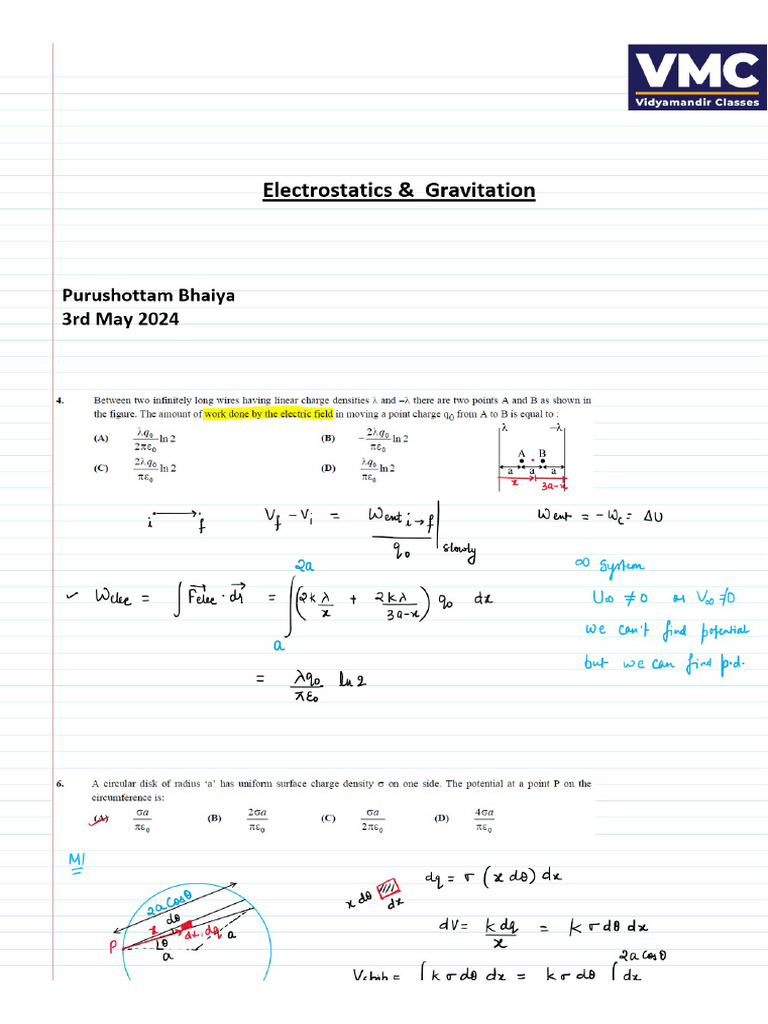 VMC
Vidyamandir Classes
Electrostatics & Gravitation
Purushottam Bhaiya
3rd May 2024
4. Between two infinitely long wires having linear charge densities λ and –λ there are two points A and B as shown in
the figure. The amount of work done by the electric field in moving a point charge q₀ from A to B is equal to :
(A) λq₀/2πε₀ ln 2 (B) –2λq₀/πε₀ ln 2
(C) 2λq₀/πε₀ ln 2 (D) λq₀/πε₀ ln 2
λ –λ
A B
a a a
x 3a-x
i f V_f – V_i = W_ext i→f / q₀ | slowly W_ext = – W_c = ΔU
✓ W_elec = ∫ F_elec · dr = ∫_a^2a (2kλ/x + 2kλ/3a-x) q₀ dx
= λq₀/πε₀ ln 2
∞ system
U∞ ≠ 0 or V∞ ≠ 0
we can't find potential
but we can find p.d.
6. A circular disk of radius ‘a’ has uniform surface charge density σ on one side. The potential at a point P on the
circumference is:
(A) σa/πε₀ (B) 2σa/πε₀ (C) σa/2πε₀ (D) 4σa/πε₀
M1
2a cosθ
x dθ
P θ dx, dq a
a
x dθ dx
dq = σ (x dθ) dx
dV = k dq/x = k σ dθ dx
= ∫ k σ dθ dx = k σ dθ ∫^2a cosθ dx